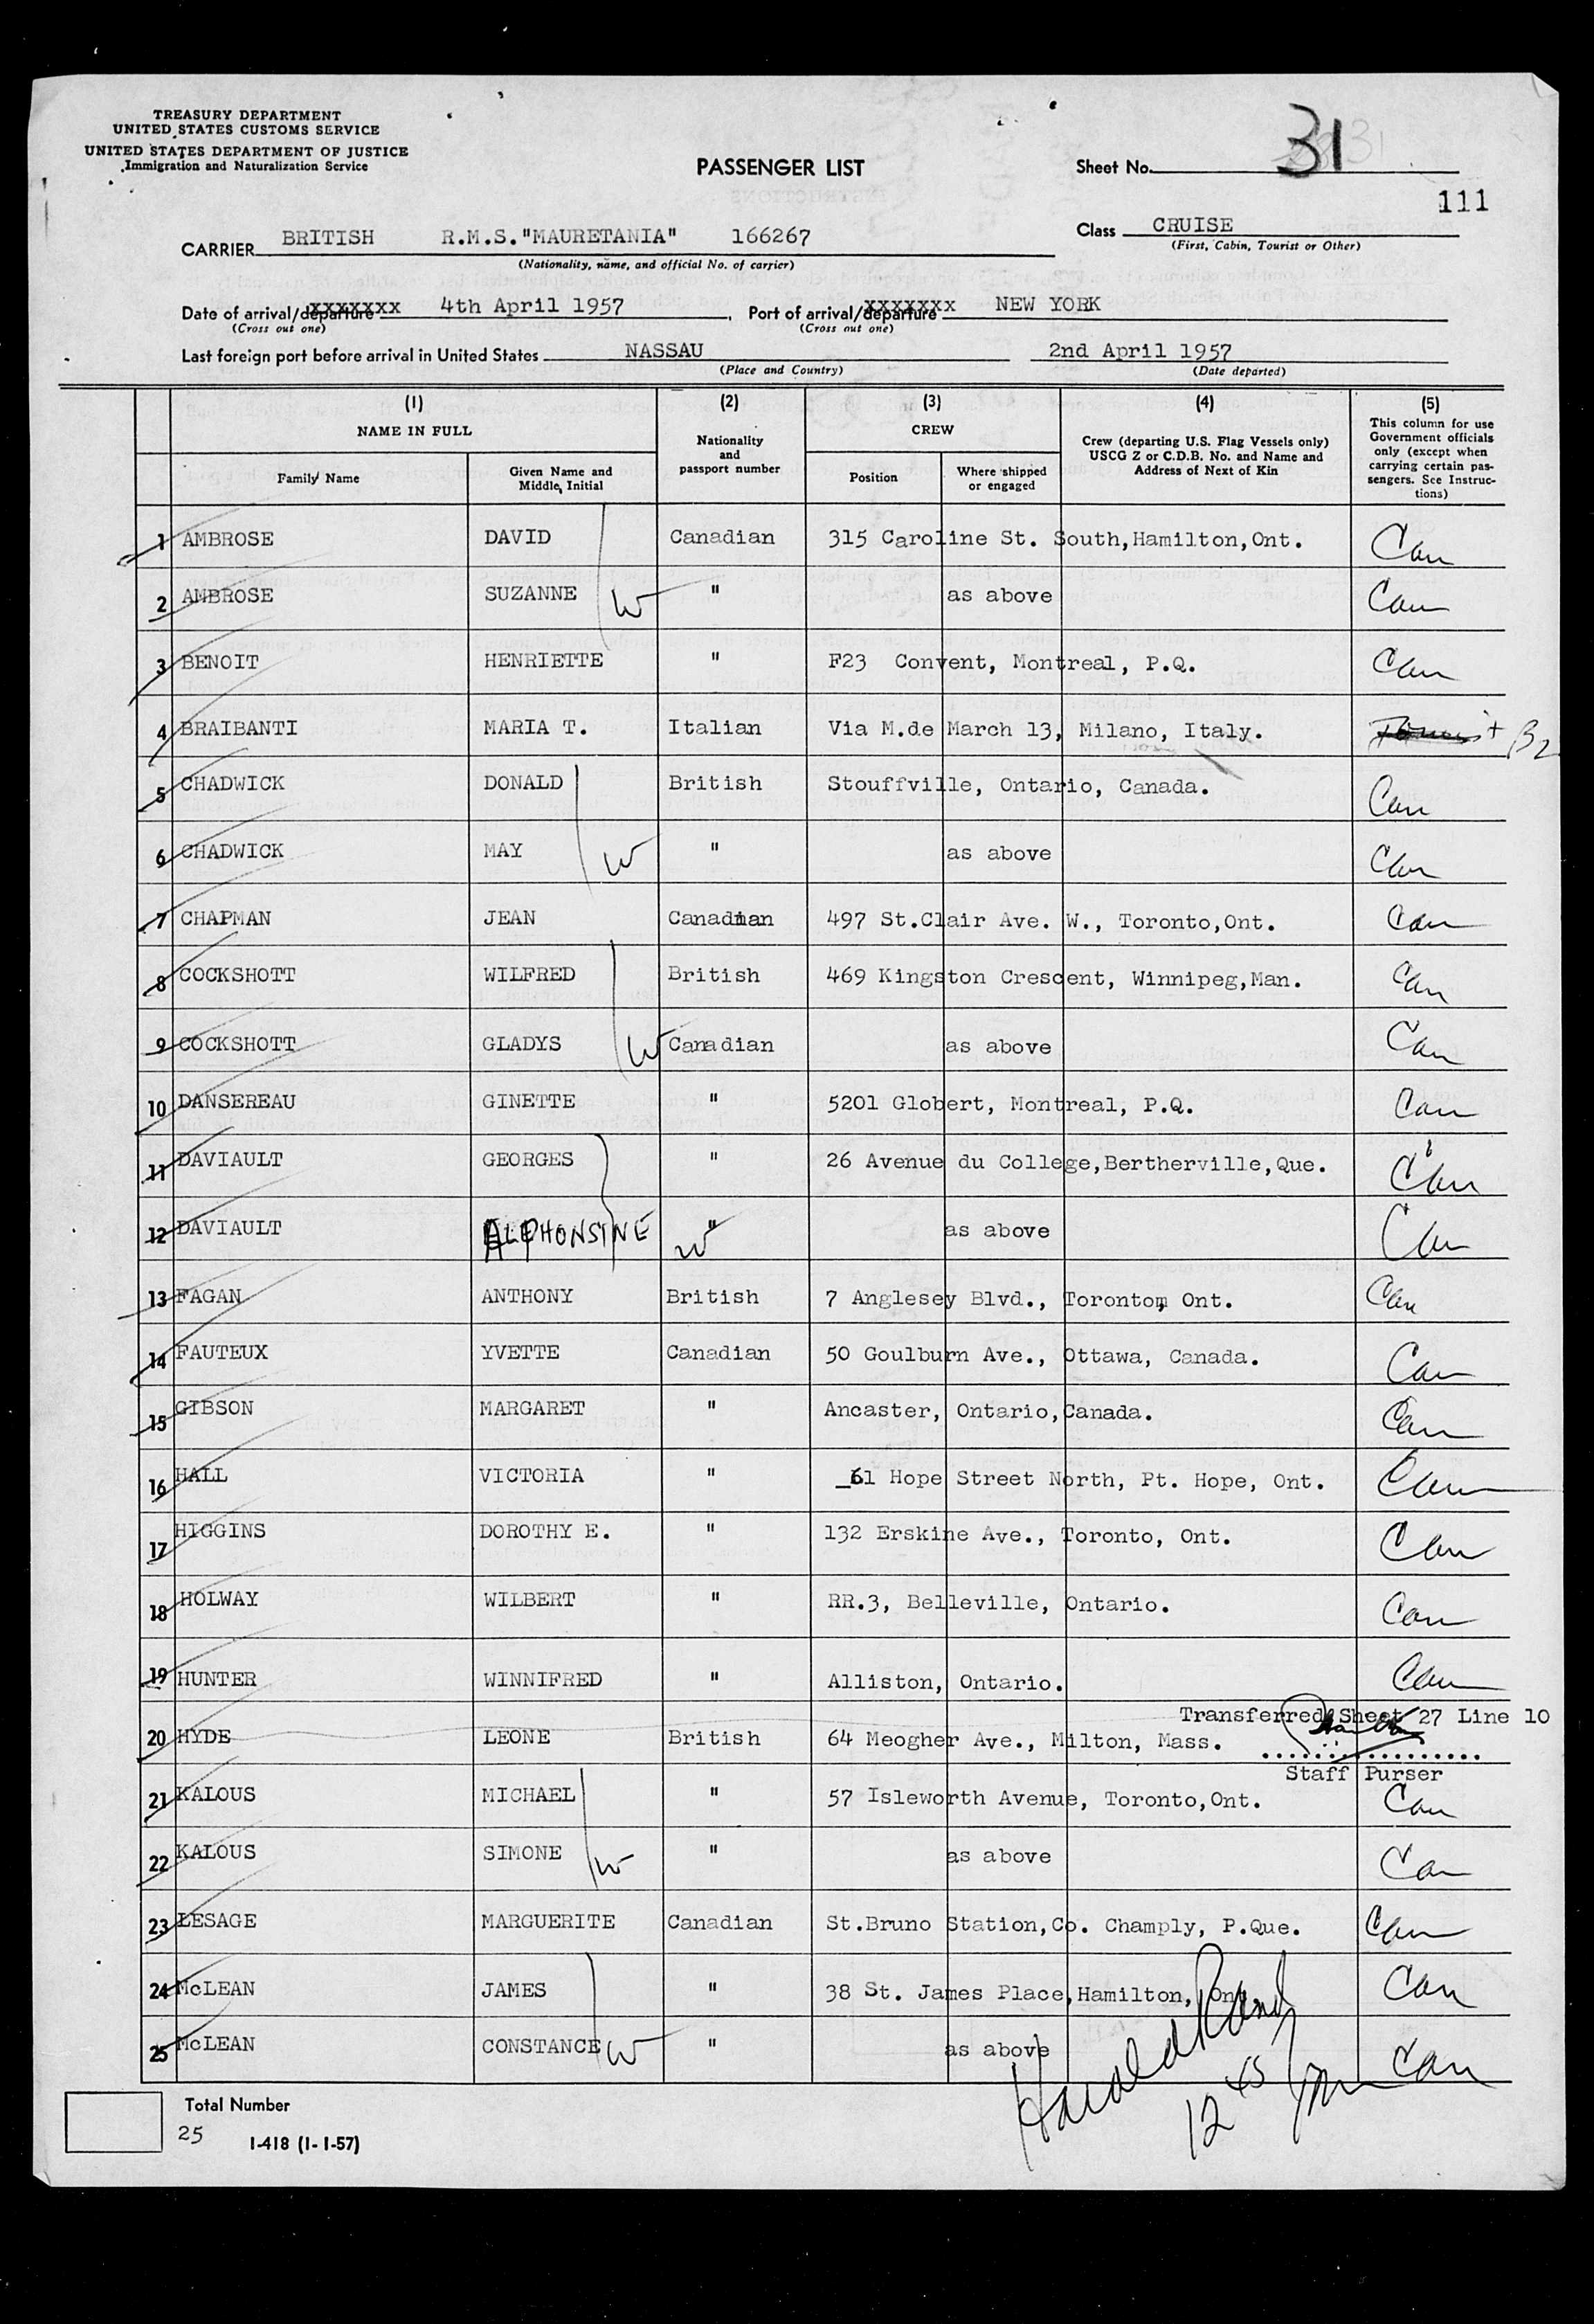 TREASURY DEPARTMENT
UNITED STATES CUSTOMS SERVICE
UNITED STATES DEPARTMENT OF JUSTICE
Immigration and Naturalization Service
PASSENGER LIST
Sheet No. 31
111
CARRIER BRITISH R.M.S."MAURETANIA" 166267
(Nationality, name, and official No. of carrier)
Class CRUISE
(First, Cabin, Tourist or Other)
Date of arrival/departure xxxxxxx 4th April 1957 Port of arrival/departure xxxxxxx NEW YORK
(Cross out one) (Cross out one)
Last foreign port before arrival in United States NASSAU 2nd April 1957
(Place and Country) (Date departed)
(1) (2) (3) (4) (5)
NAME IN FULL
Family Name
Given Name and Middle Initial
Nationality and passport number
CREW
Position
Where shipped or engaged
Crew (departing U.S. Flag Vessels only) USCG Z or C.D.B. No. and Name and Address of Next of Kin
This column for use Government officials only (except when carrying certain passengers. See Instructions)
1 AMBROSE DAVID Canadian 315 Caroline St. South,Hamilton,Ont. Can
2 AMBROSE SUZANNE W " as above Can
3 BENOIT HENRIETTE " F23 Convent, Montreal, P.Q. Can
4 BRAIBANTI MARIA T. Italian Via M.de March 13, Milano, Italy. B2
5 CHADWICK DONALD British Stouffville, Ontario, Canada. Can
6 CHADWICK MAY W " as above Can
7 CHAPMAN JEAN Canadian 497 St.Clair Ave. W., Toronto,Ont. Can
8 COCKSHOTT WILFRED British 469 Kingston Crescent, Winnipeg,Man. Can
9 COCKSHOTT GLADYS W Canadian as above Can
10 DANSEREAU GINETTE " 5201 Globert, Montreal, P.Q. Can
11 DAVIAULT GEORGES " 26 Avenue du College,Bertherville,Que. Can
12 DAVIAULT ALPHONSINE W " as above Can
13 FAGAN ANTHONY British 7 Anglesey Blvd., Toronto, Ont. Can
14 FAUTEUX YVETTE Canadian 50 Goulburn Ave., Ottawa, Canada. Can
15 GIBSON MARGARET " Ancaster, Ontario,Canada. Can
16 HALL VICTORIA " 61 Hope Street North, Pt. Hope, Ont. Can
17 HIGGINS DOROTHY E. " 132 Erskine Ave., Toronto, Ont. Can
18 HOLWAY WILBERT " RR.3, Belleville, Ontario. Can
19 HUNTER WINNIFRED " Alliston, Ontario. Can
Transferred Sheet 27 Line 10
20 HYDE LEONE British 64 Meogher Ave., Milton, Mass.
Staff Purser
21 KALOUS MICHAEL " 57 Isleworth Avenue, Toronto,Ont. Can
22 KALOUS SIMONE W " as above Can
23 LESAGE MARGUERITE Canadian St.Bruno Station,Co. Champly, P.Que. Can
24 McLEAN JAMES " 38 St. James Place,Hamilton, Ont. Can
25 McLEAN CONSTANCE W " as above Can
Harold Rand
12 45 pm
Total Number
25
I-418 (1-1-57)